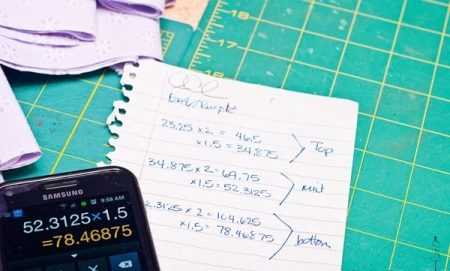 18
17
23.25 x 2 = 46.5
x1.5 = 34.875
Top
34.875 x 2 = 69.75
x1.5 = 52.3125
mid
2.3125 x 2 = 104.625
x1.5 = 78.46875
bottom
SAMSUNG
9:58 AM
52.3125×1.5
=78.46875